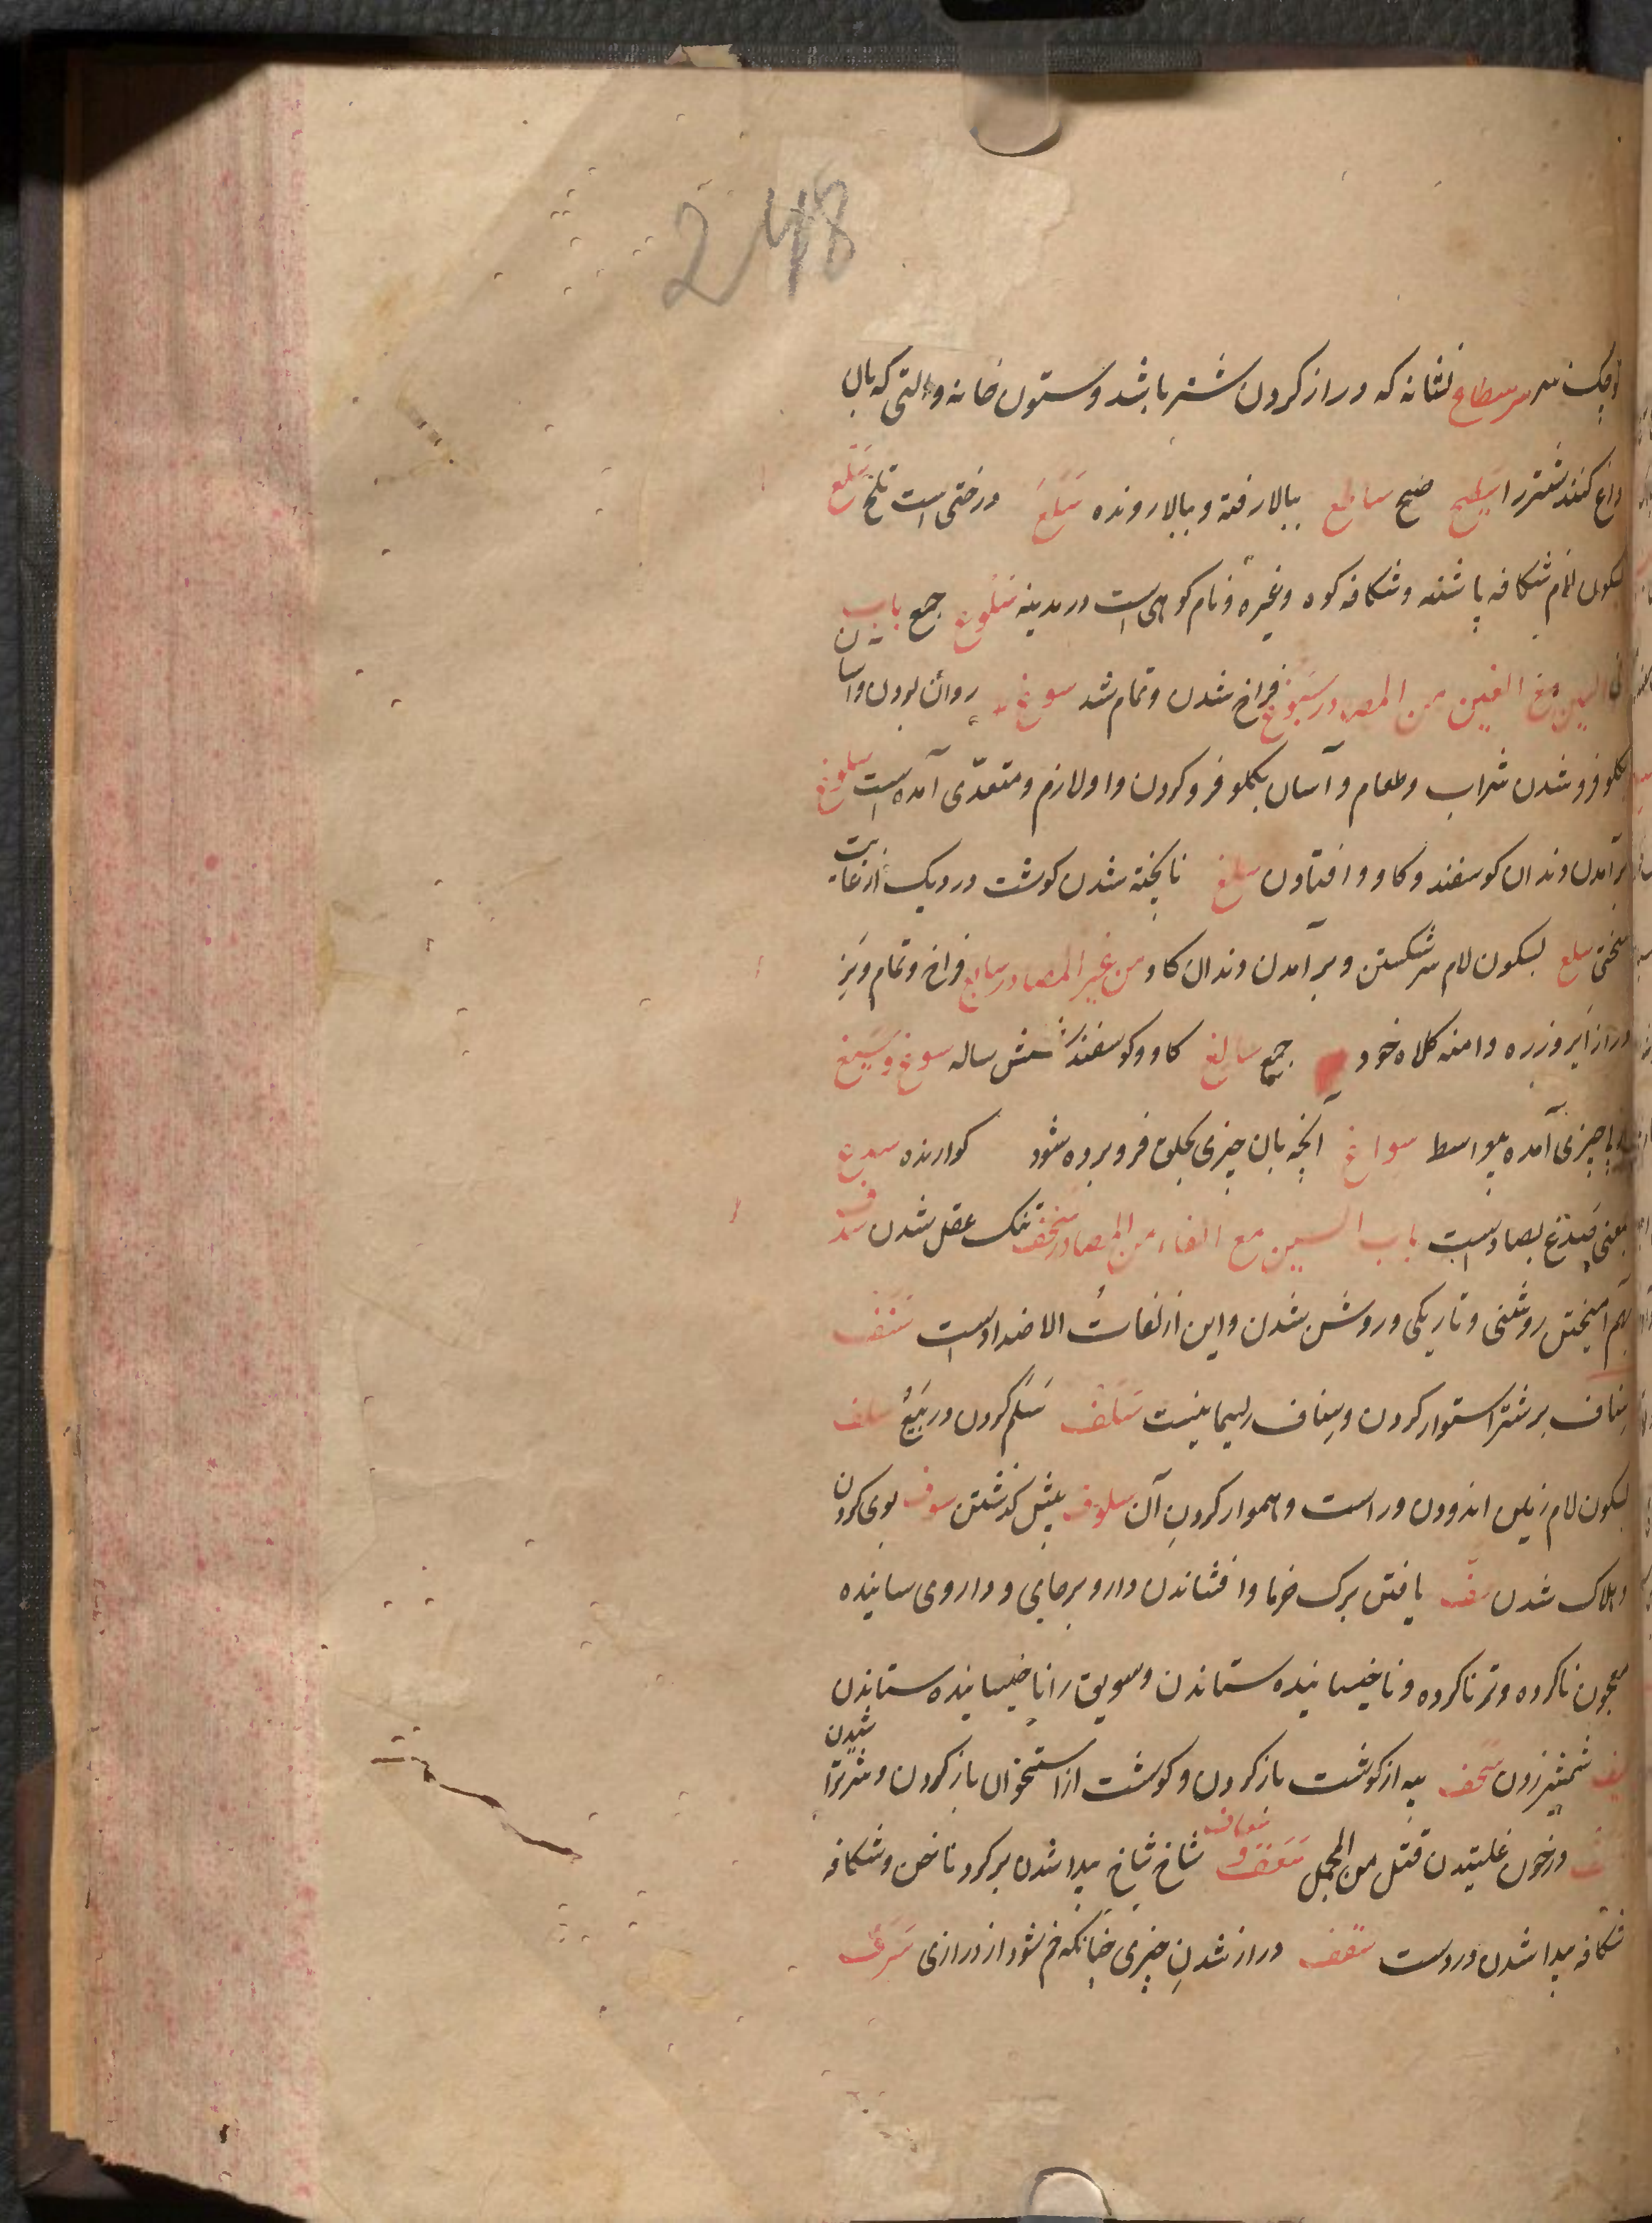 248
کوچک سر سطاع نشانه که دراز کردن شتر باشد و ستون خانه و التی که بال
داغ کنند شتر را سطیع صبح ساطع ببالا رفته و ببالا رونده سَلَع درختی است تلخ سَلْع
بسکون لام شکافه پاشنه و شکافه کوه و غیره و نام کوهی است در مدینه سُلُوع جمع باب
السین مع الغین من المصادر سُبُوغ فراخ شدن و تمام شد سوغ روان بودن و آسان
بکلو فرو شدن شراب و طعام و آسان بکلو فرو کردن و او لازم و متعدّی آمده است سلوغ
برآمدن دندان کوسفند و کاو و افتادن سلغ ناپخته شدن کوشت در دیک از غایت
سختی سلغ بسکون لام سر شکستن و برآمدن دندان کاو من غیر المصادر سابغ فراخ و تمام و نیز
دراز ایر و زره و دامنه کلاه خود جمع سالغ کاو و کوسفند شش ساله سوغ و سَیّغ
با چیزی آمده بیواسط سواغ آنچه بان چیزی بحلق فرو برده شود کوارنده سدغ
بمعنی صَدْغ بصاد است باب السین مع الفاء من المصادر سخف تنک عقل شدن سدف
بهم آمیختن روشنی و تاریکی و روشن شدن و این از لغات الاضداد است سَنَف
سِناف بر شتر استوار کردن و سِناف ریسمانیست سَلَف سَلَم کردن در بیع سلف
بسکون لام زمین اندودن و راست و هموار کردن آن سلوف پیش کذشتن سوف بوی کردن
و هلاک شدن سَفّ یافتن برک خرما و افشاندن دارو بر جای و داروی سانیده
معجون ناکرده و تر ناکرده و ناخیسانیده ستاندن و سویق را ناخیسانیده ستاندن
سیف شمشیر زدن سَحف پیه از کوشت باز کردن و کوشت از استخوان باز کردن و سر ترا شیدن
در خون غلتیدن قتل من المجمل سَعَف و سعاف شاخ شاخ پیدا شدن بر کرد ناخن و شکافه
شکافه پیدا شدن در دست سَقف دراز شدن چیزی چنانکه خم شود از درازی سَرَف